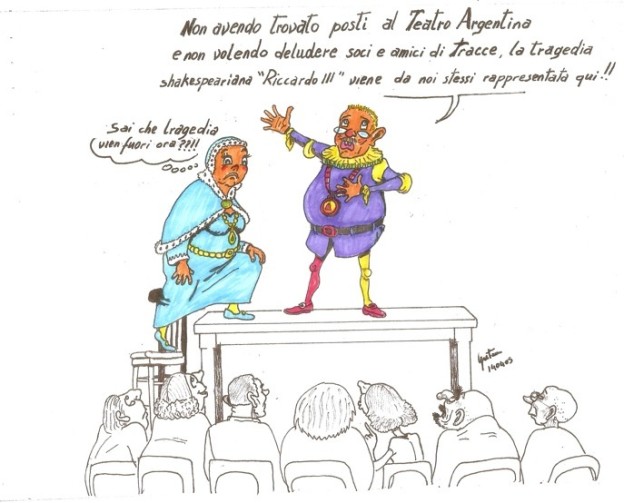 Non avendo trovato posti al Teatro Argentina
e non volendo deludere soci e amici di Tracce, la tragedia
shakespeariana "Riccardo III" viene da noi stessi rappresentata qui!!
Sai che tragedia
vien fuori ora???!!